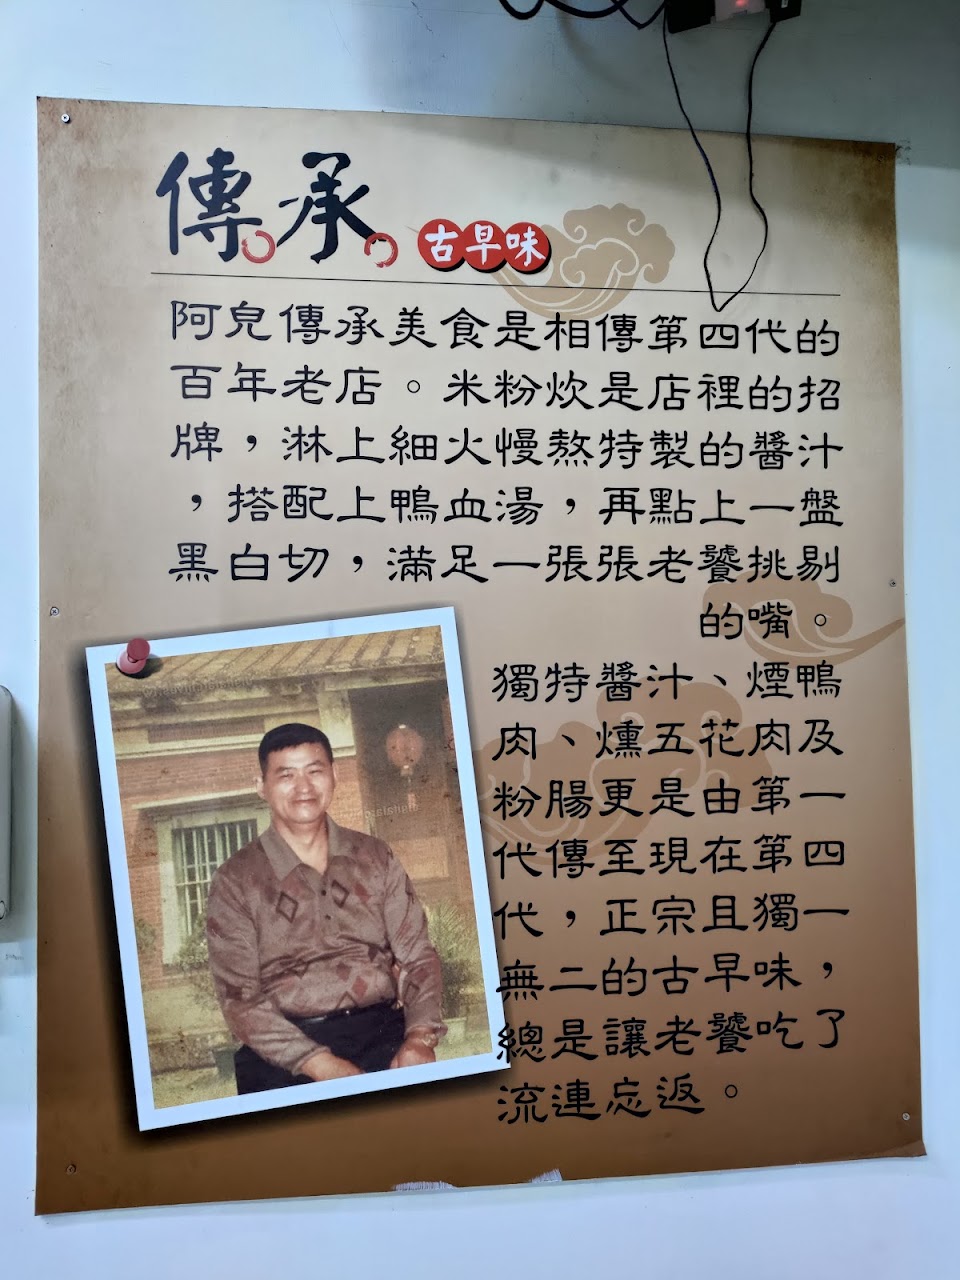 傳承 古早味
阿皃傳承美食是相傳第四代的
百年老店。米粉炊是店裡的招
牌，淋上細火慢熬特製的醬汁
，搭配上鴨血湯，再點上一盤
黑白切，滿足一張張老饕挑剔
的嘴。
獨特醬汁、煙鴨
肉、燻五花肉及
粉腸更是由第一
代傳至現在第四
代，正宗且獨一
無二的古早味，
總是讓老饕吃了
流連忘返。